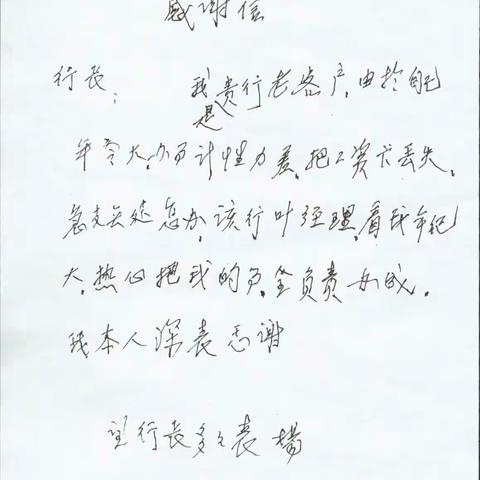 感谢信
行长： 我是贵行老客户，由於自己
年令大，记性力差，把工资卡丢失，
急 怎办，该行叶经理，看我年纪
大，热心把我的 全负责办成，
我本人深表感谢
望行长多多表扬